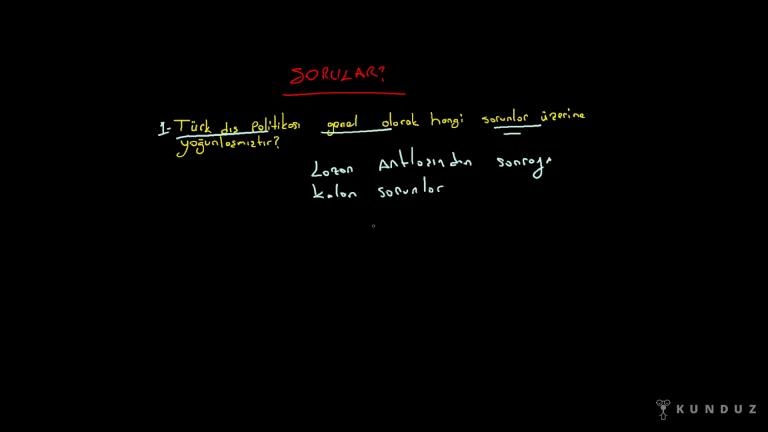 SORULAR?
1- Türk dış politikası genel olarak hangi sorunlar üzerine
yoğunlaşmıştır?
Lozan Antlaşından sonraya
kalan sorunlar
KUNDUZ